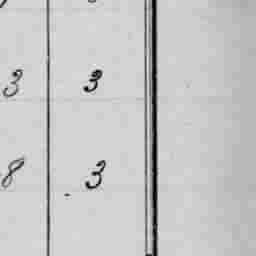 3 3
8 3